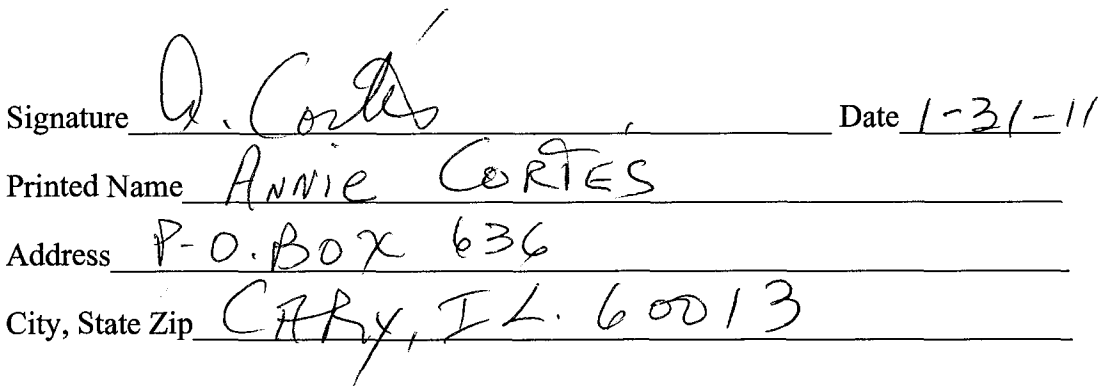 Signature A. Cortés Date 1-31-11
Printed Name ANNIE CORTES
Address P-O. BOX 636
City, State Zip CARY, IL. 60013